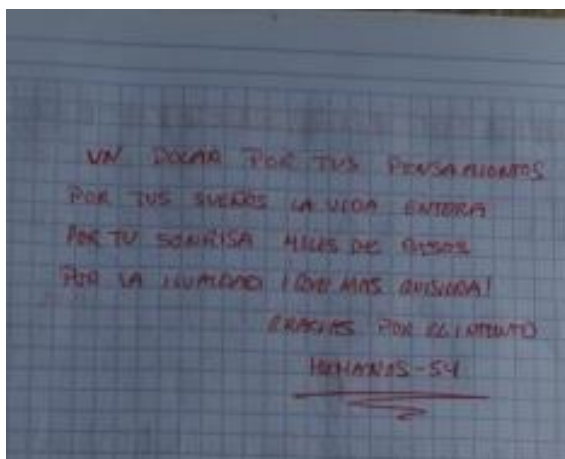 UN DOLAR POR TUS PENSAMIENTOS
POR TUS SUEÑOS LA VIDA ENTERA
POR TU SONRISA MILES DE
POR LA IGUALDAD ¡QUE MAS QUISIERA!
GRACIAS POR EL INTENTO
HUMANOS-54